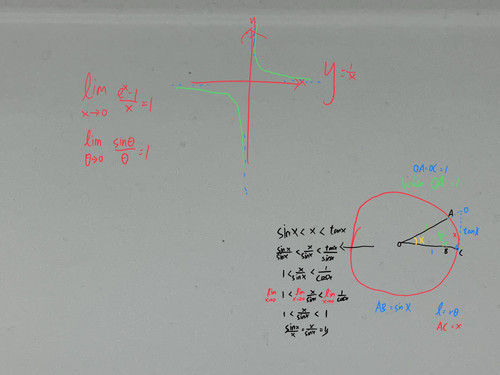 y
x
y = 1/x
lim x→0 eˣ-1/x = 1
lim θ→0 sinθ/θ = 1
OA=OC=1
A
D
tanx
O
x
1
B
C
sinx < x < tanx
sinx/sinx < x/sinx < tanx/sinx
1 < x/sinx < 1/cosx
lim x→0 1 < lim x→0 x/sinx < lim x→0 1/cosx
1 < x/sinx < 1
AB = sinx
l = rθ
AC = x